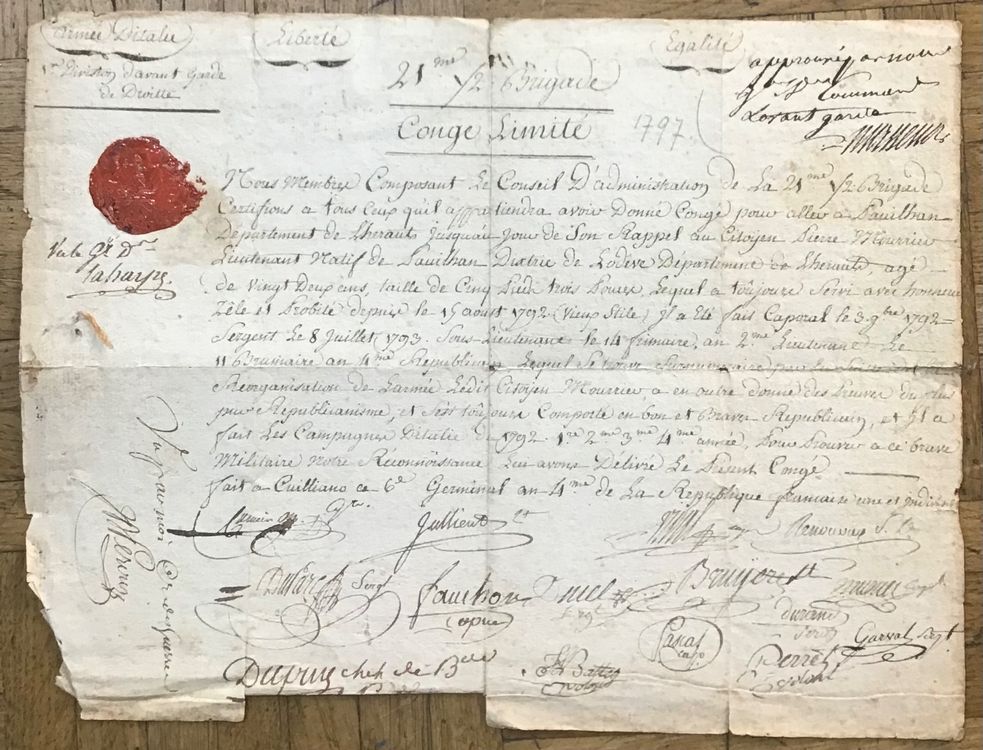 Armée Ditalie Liberté Egalité
1re Division d'avant Garde
de Droitte
21me 1/2 Brigade
approuvé par nous
Command
Lavant garde
Conge Limité 1797
Nous Membres Composant Le Conseil D'administration de La 21me 1/2 Brigade
Certifions a tous Ceux quil appartiendra avoir Donné Congé pour aller a Paulhan
Département de Lherault Jusquau Jour de Son Rappel au Citoyen Pierre Mourrier
Lieutenant Natif de Paulhan District de Lodeve Département de Lherault, agé
de Vingt Deux ans, taille de Cinq Pieds trois Pouces, Lequel a toujours Servi avec honneur
Zèle et Probité depuis le 15 aoust 1792 (Vieux Stile) y a Eté fait Caporal le 3 9bre 1792
Sergent Le 8 Juillet 1793. Sous-Lieutenant le 14 frimaire, an 2me Lieutenant Le
11 Brumaire an 4me Républicain Lequel Se trouve Surnuméraire par la
Réorganisation de Larmée Ledit Citoyen Mourrier a en outre donné des Preuves du plus
pure Républicanisme, et Sest toujours Comporté en bon et Brave Républicain, et Il a
fait Les Campagnes Ditalie de 1792 1re 2me 3me 4me année, Pour Prouver a ce brave
Militaire Notre Réconnoissance Lui avons Délivré Le Présent Congé
fait a Cuilliano ce 6e Germinal an 4me de La République francaise une et Indivisi
Vu le Gl Dre
Laharpe
Vu par moi Cre de guerre
Jullien Lt
Renouvar S. Lt
Dufar Sergt
Fauchon
capne
Bruyere Lt
durand
Sergt
Garval Sergt
Pascal
capo
Perret
volont
Dupuy chef de Bde
Battes
volont